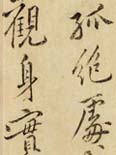 孤絶處
觀身實